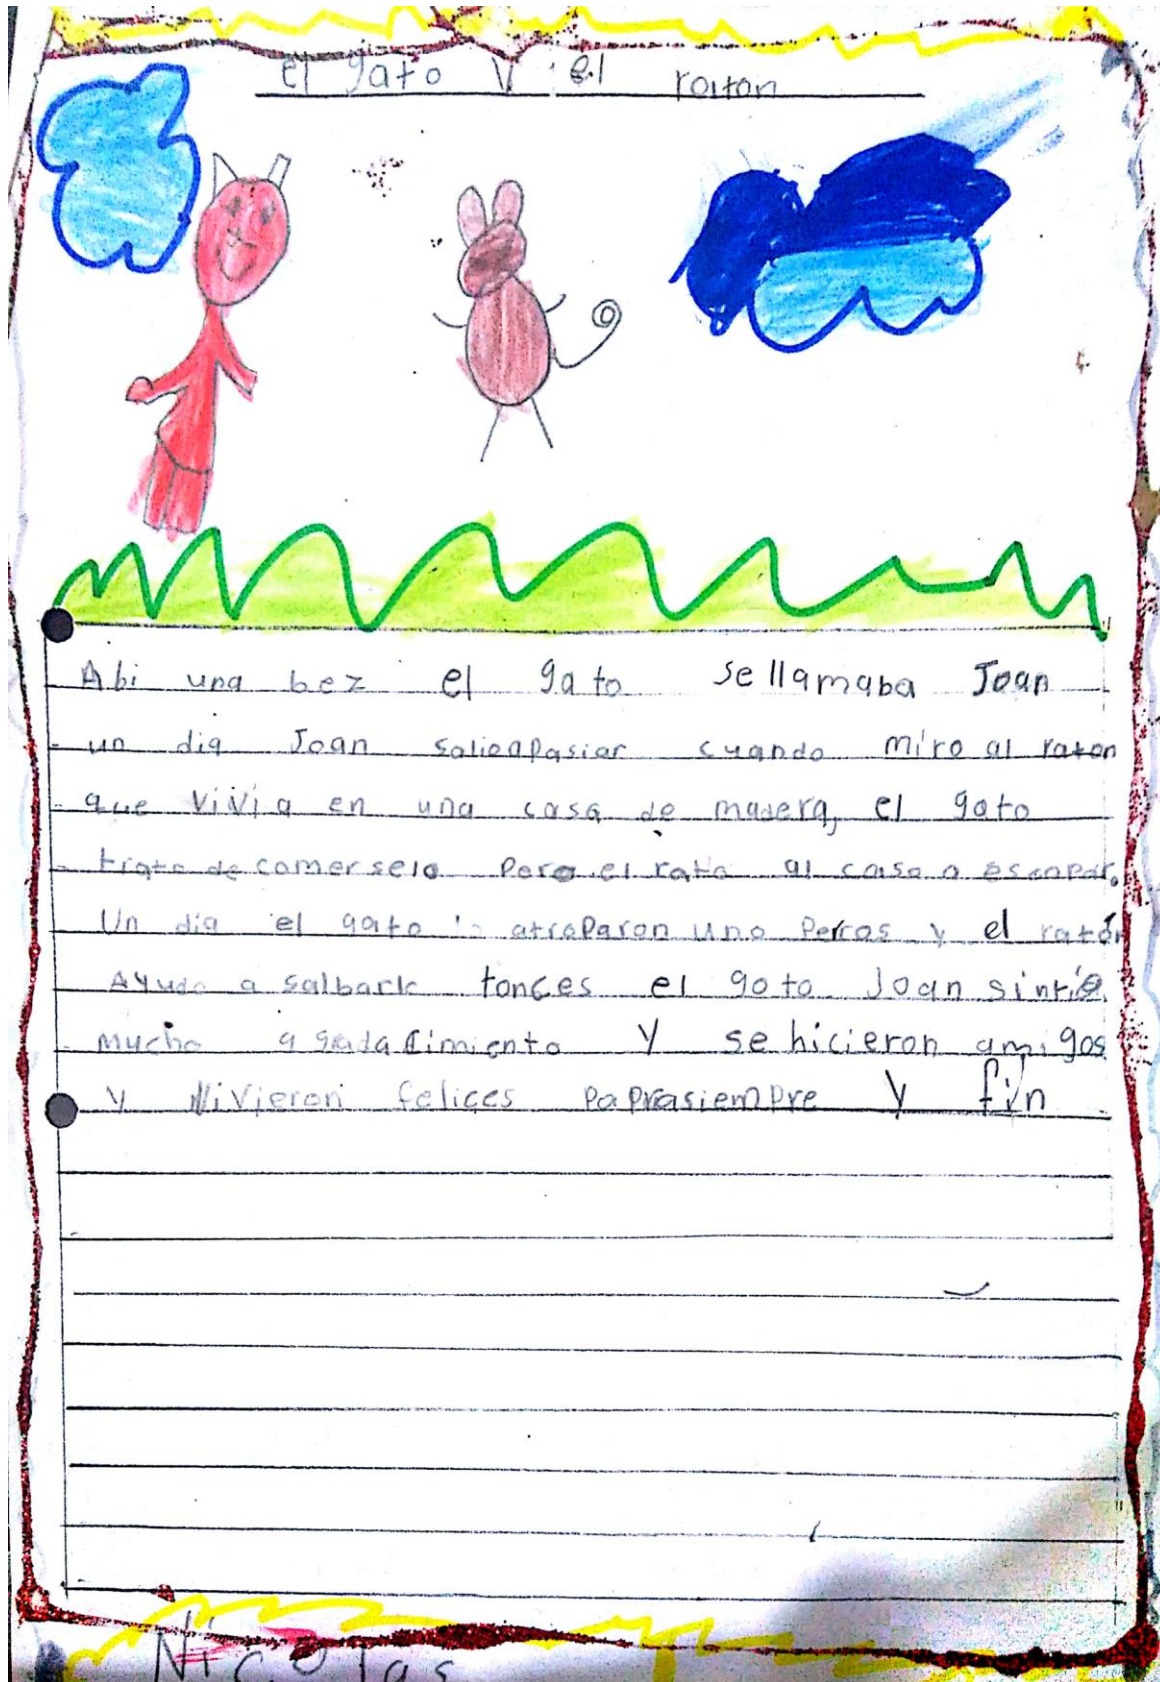 el gato y el raton
Abi una bez el gato se llamaba Joan
un dia Joan salioapasiar cuando miro al raton
que vivia en una casa de madera, el gato
trato de comerselo pero el rato al caso a escapar,
Un dia el gato lo atraparon uno perros y el ratón
Ayudo a salbarle tonces el gato Joan sintió
mucho agradacimiento y se hicieron amigos
y vivieron felices paprasiempre y fin
Nicolas